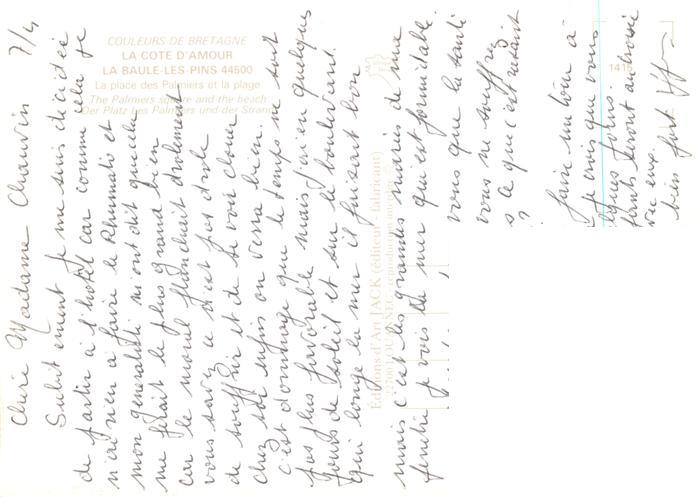 COULEURS DE BRETAGNE
LA COTE D'AMOUR
LA BAULE-LES-PINS 44500
La place des Palmiers et la plage
The Palmiers square and the beach
Der Platz les Palmiers und der Strand
Editions d'Art JACK (éditeur - fabricant)
Chère Madame Chauvin 7/4
Subitement je me suis décidée
de partir à l'hôtel car comme cela je
n'ai rien à faire le Rhumato et
mon generaliste m'ont dit que cela
me ferait le plus grand bien
car le moral flanchait drolement
vous savez ce n'est pas drole
de souffrir et de se voir clouer
chez soi enfin on verra bien.
c'est dommage que le temps ne soit
pas plus favorable mais j'ai eu quelques
jours de soleil et sur le boulevard
qui longe la mer il faisait bon
mais c'est les grandes marées de ma
fenêtre je vois la mer qui est formidable.
vous que la santé
vous ne souffrez
s ce que c'est
faire un tour à
je crois que vous